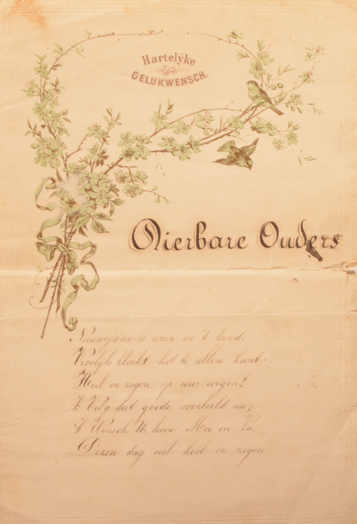 Hartelijke
GELUKWENSCH.
Dierbare Ouders
Nieuwjaar is weer in 't land.
Vroolijk klinkt het te allen kant.
Heil en zegen op uw wegen!
'k Volg dat goede voorbeeld na;
'k Wensch U, lieve Moe en Pa,
Dezen dag veel heil en zegen.